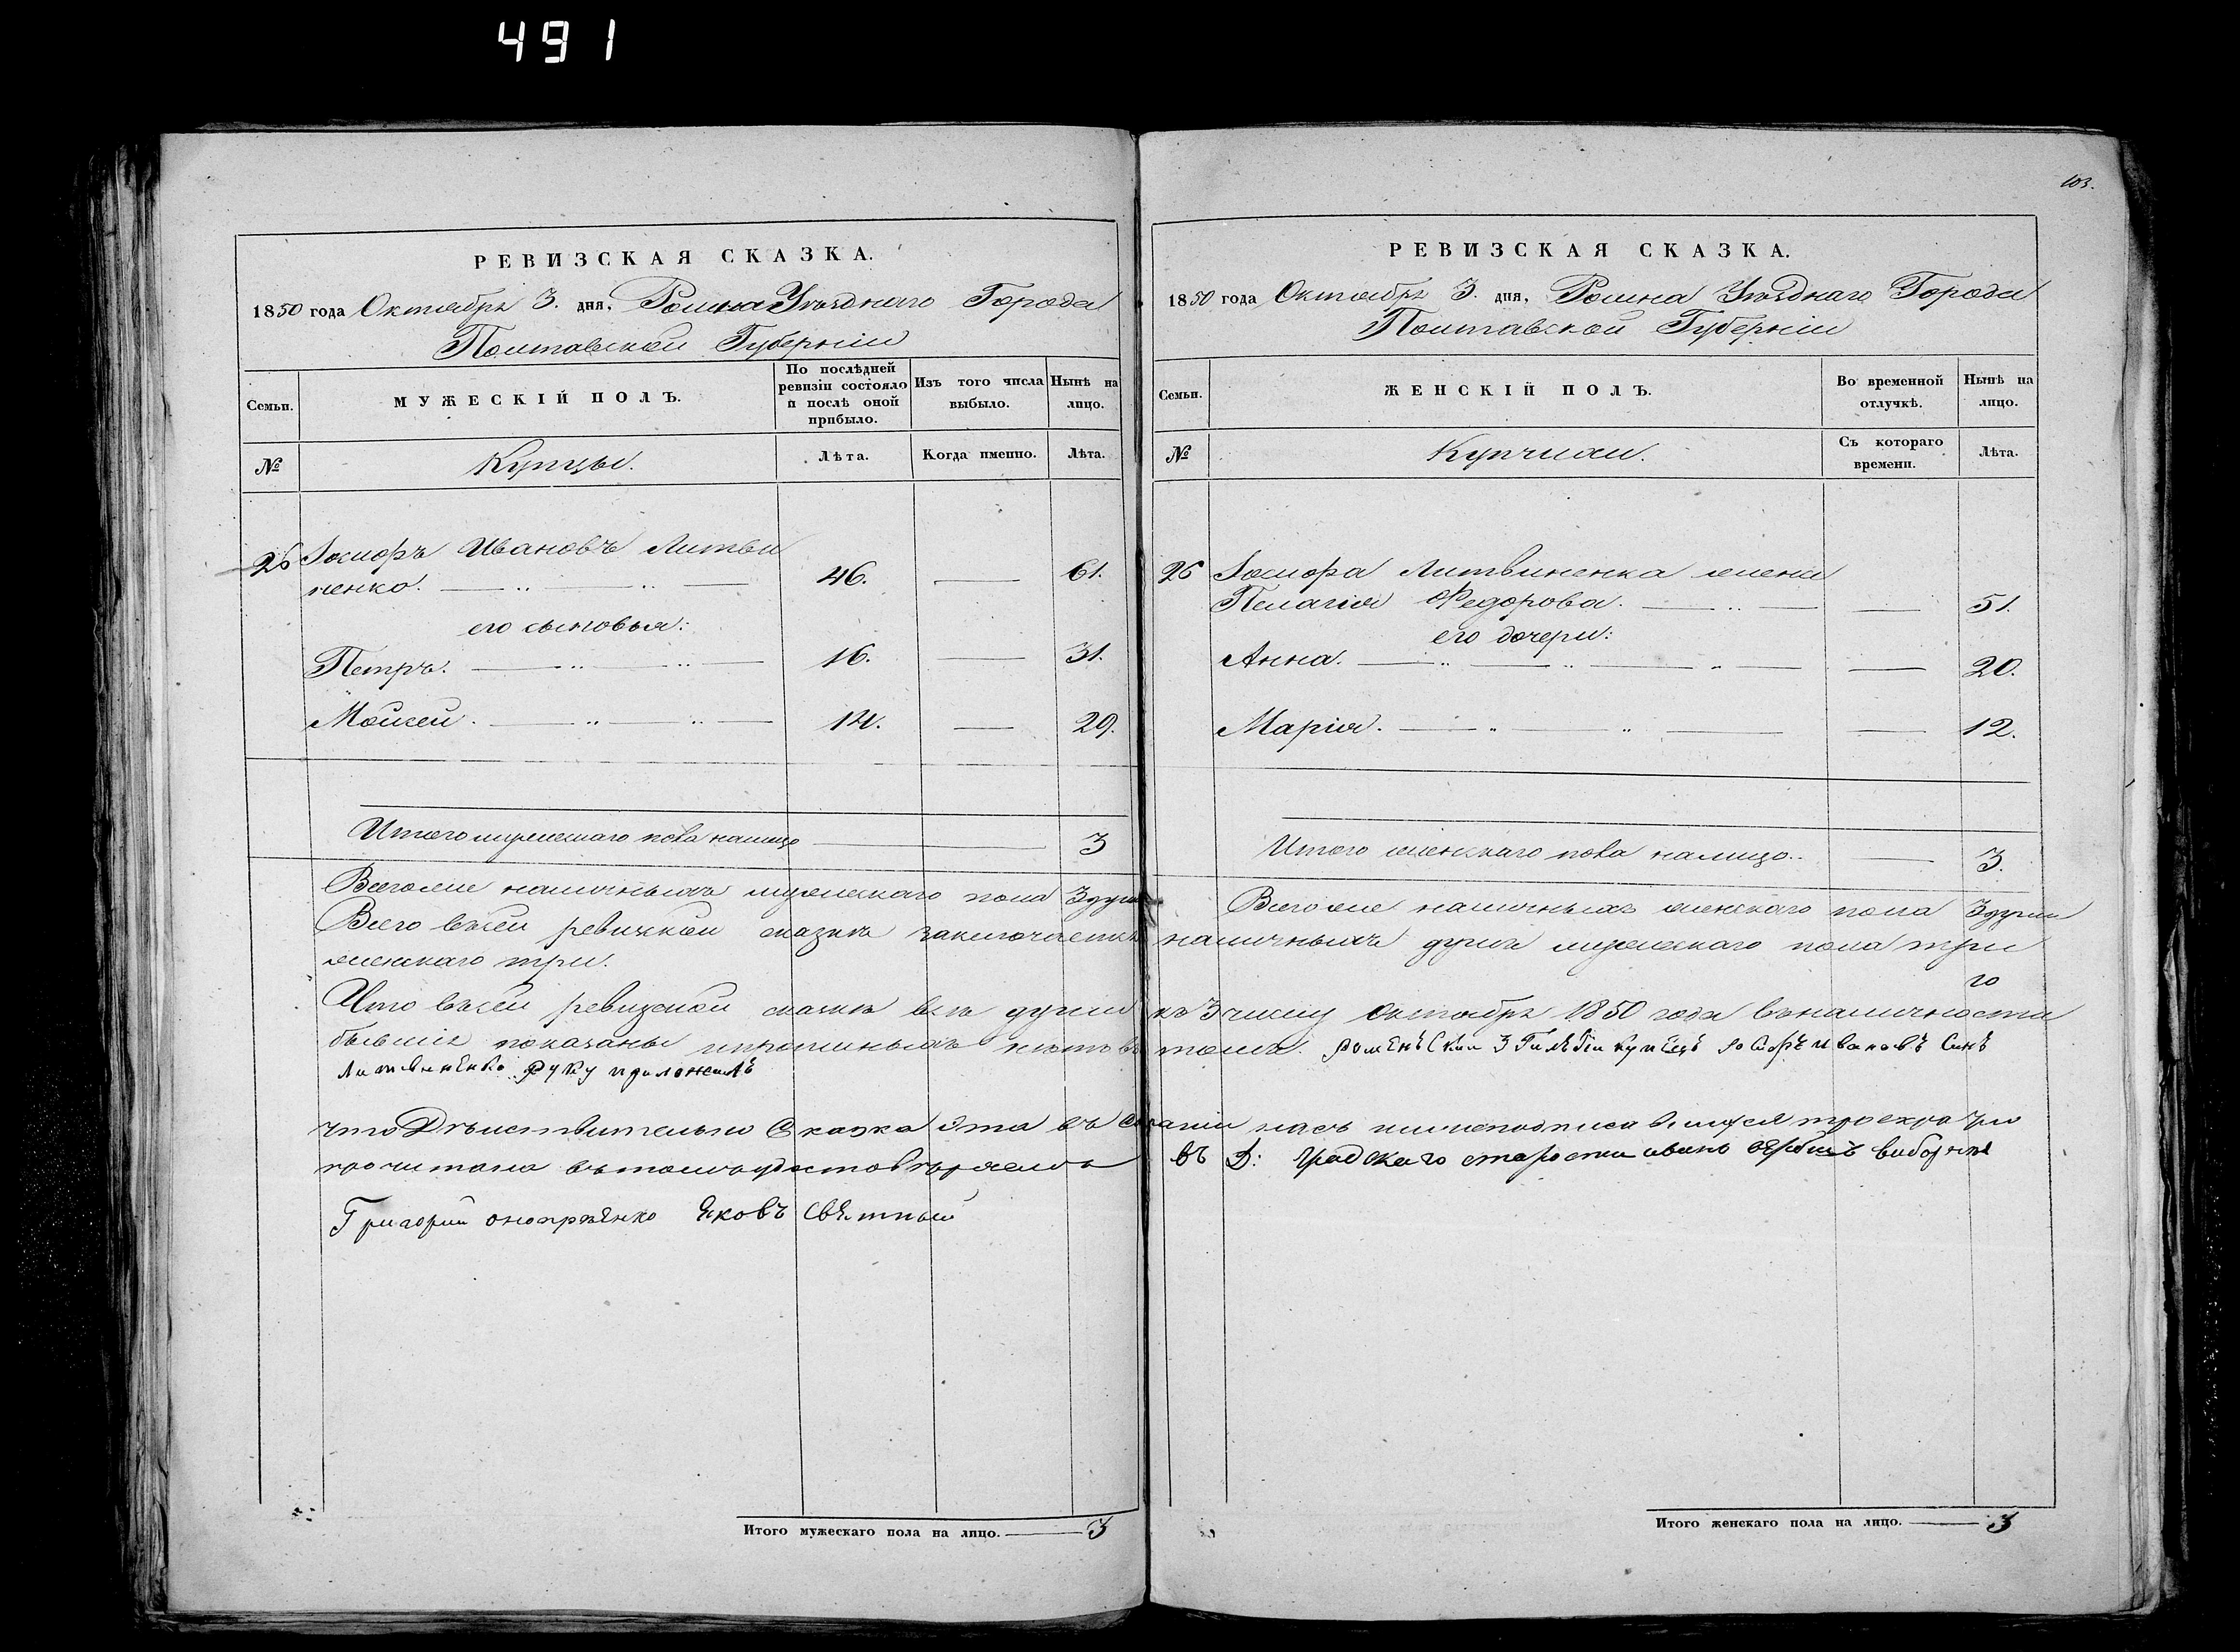 491
103.
РЕВИЗСКАЯ СКАЗКА.
1850 года Октября 3. дня, Ромна Уѣзднаго Города
Полтавской Губерніи
Семьи.
МУЖЕСКІЙ ПОЛЪ.
По послѣдней ревизіи состояло и послѣ оной прибыло.
Изъ того числа выбыло.
Нынѣ на лицо.
№
Купцы.
Лѣта.
Когда именно.
Лѣта.
26 Іосифъ Ивановъ Литви
ненко. 46. — 61.
его сыновья:
Петръ. 16. — 31.
Мойсей. 14. — 29.
Итого мужескаго пола налицо 3
Всего же наличныхъ мужескаго пола 3 души
Всего въ сей ревизской сказкѣ заключается
женскаго три.
Что въ сей ревизской сказкѣ всѣ души
бывшіе показаны и прописныхъ нѣтъ въ
Литвиненко руку приложилъ
что Дѣйствительно Сказка эта въ
прочитана въ томъ удостовѣряемъ
Григорий Яковъ
Итого мужескаго пола на лицо. — 3
РЕВИЗСКАЯ СКАЗКА.
1850 года Октября 3. дня, Ромна Уѣзднаго Города
Полтавской Губерніи
Семьи.
ЖЕНСКІЙ ПОЛЪ.
Во временной отлучкѣ.
Нынѣ на лицо.
№
Купчихи.
Съ котораго времени.
Лѣта.
26 Іосифа Литвиненка жена
Пелагія Федорова. — 51.
его дочери:
Анна. — 20.
Марія. — 12.
Итого женскаго пола налицо. — 3.
Всего же наличныхъ женскаго пола 3 души
наличныхъ душъ мужескаго пола три
го
къ 3 числу Октября 1850 года въ наличности
томъ. роменъский 3 Гилъдіи купецъ Іосифъ Ивановъ Синъ
насъ нижеподписавшихся
въ Д: градскаго старости иванъ виборніе
Итого женскаго пола на лицо. — 3